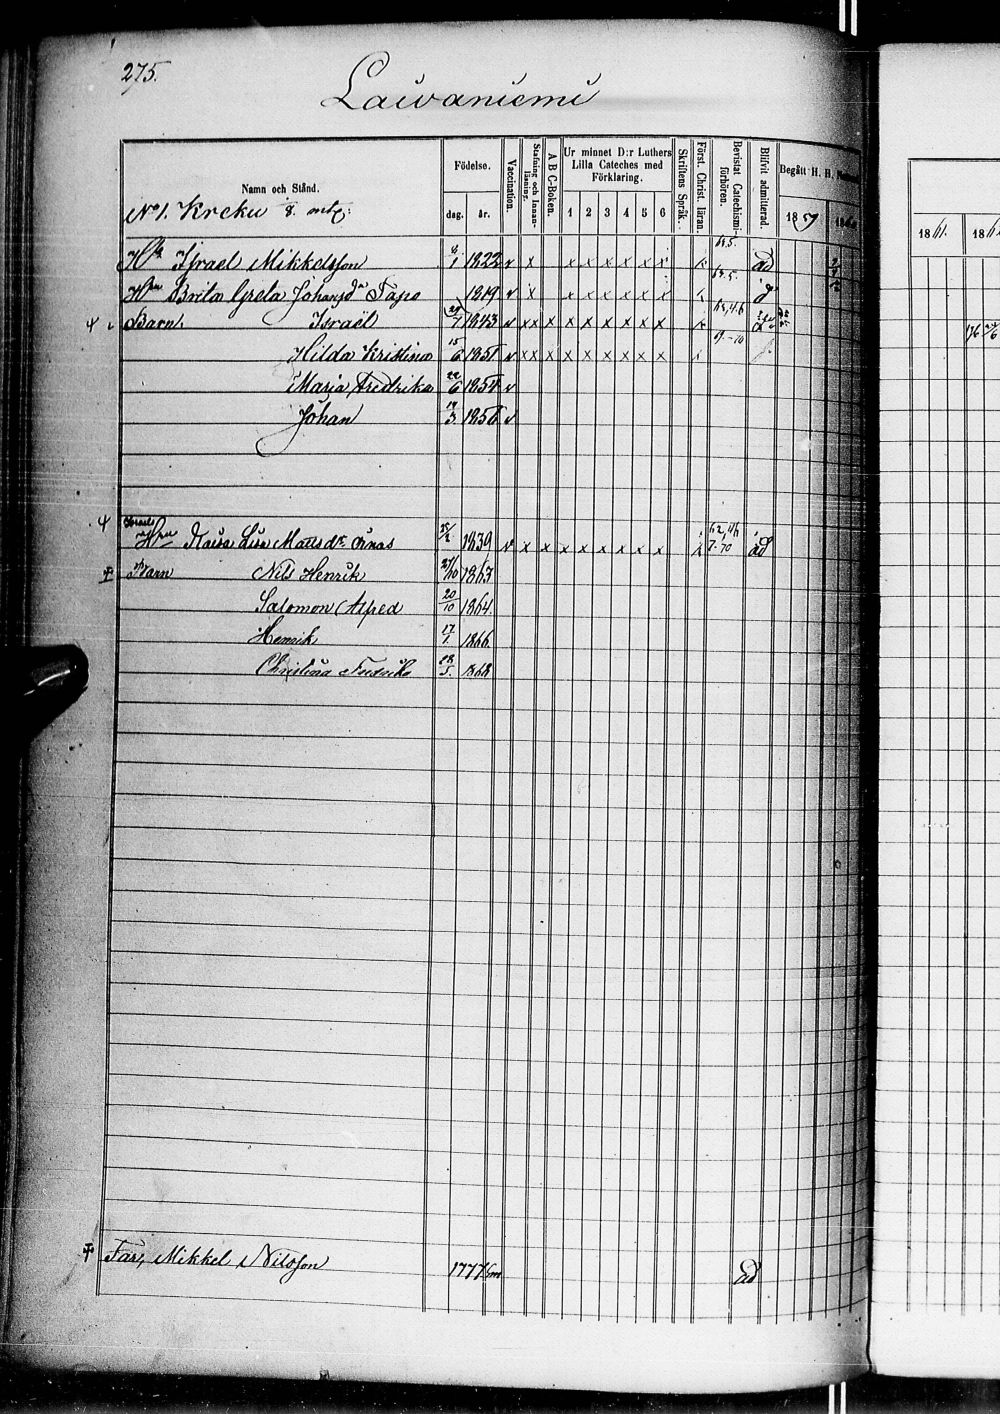 275.
Laivaniemi
Namn och Stånd.
Födelse.
dag. år.
Vaccination.
Stafning och Innanläsning.
A B C-Boken.
Ur minnet D:r Luthers Lilla Cateches med Förklaring.
1 2 3 4 5 6
Skriftens Språk.
Först. Christ. läran.
Bevistat Catechismiförhören.
Blifvit admitterad.
Begått H. H.
1859 1860
1861. 186
No 1. Kreku 8. mtl:
Israel Mikkelsson 8/1 1822 v x x x x x x x 65. ad
Brita Greta Johansd:r Tapo 1819 v x x x x x x x 65.5. g
Barn. Israël 29/7 1843 v x x x x x x x x x
Hilda Kristina 15/6 1851 v x x x x x x x x x
Maria Fredrika 22/6 1854 v
Johan 19/3 1856 v
Israels
Kaisa Lisa Matts dr 25/2 1839 v x x x x x x x x 62, 46 7.-70 ad
Barn Nils Henrik 27/10 1863
Salomon Alfred 20/10 1864.
Henrik 17/1. 1866
Christina Fredrika 28/5. 1868
Far, Mikkel Nilsson 1777 ad